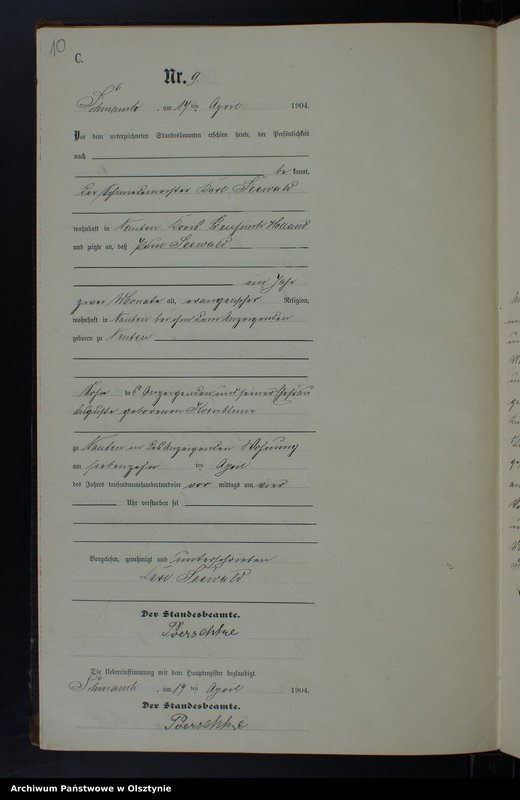 10
C.
Nr. 9
Schmauch, am 19 ten April 1904.
Vor dem unterzeichneten Standesbeamten erschien heute, der Persönlichkeit
nach
be kannt,
der Schmiedemeister Karl Seewald
wohnhaft in Neuten Kreis Preußisch Holland
und zeigte an, daß Paul Seewald
ein Jahr
zwei Monate alt, evangelischer Religion,
wohnhaft in Neuten bei ihm dem Anzeigenden
geboren zu Neuten
Sohn des Anzeigenden und seiner Ehefrau
Auguste geborenen Kornblum
zu Neuten in des Anzeigenden Wohnung
am siebenzehn ten April
des Jahres tausendneunhundertundvier vor mittags um vier
Uhr verstorben sei
Vorgelesen, genehmigt und unterschrieben
Karl Seewald
Der Standesbeamte.
Poerschke
Die Uebereinstimmung mit dem Hauptregister beglaubigt.
Schmauch, am 19 ten April 1904.
Der Standesbeamte.
Poerschke
Archiwum Państwowe w Olsztynie